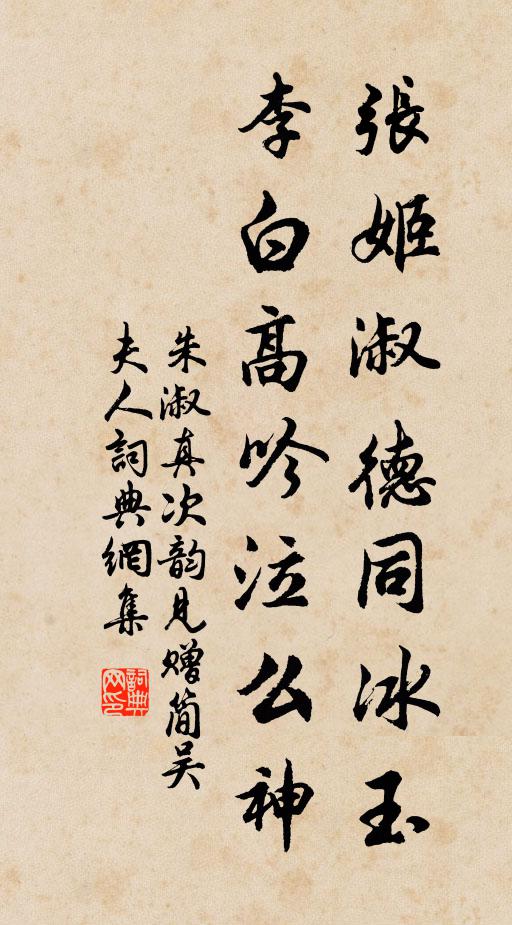 張姬淑德同冰玉
李白髙吟泣么神
朱淑真次韵见赠简吴
夫人詞典網集
詞典
网印